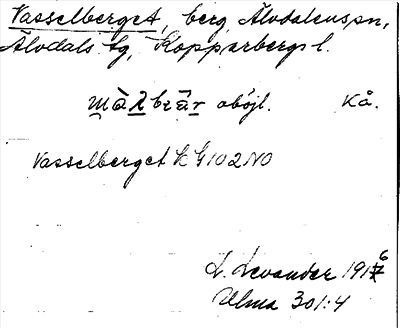 Vasselberget, berg, Älvdalens sn,
Älvdals tg, Kopparbergs l.
oböjl. Kå.
Vasselberget K G10 2 NO
L. Levander 1916
Ulma 301:4